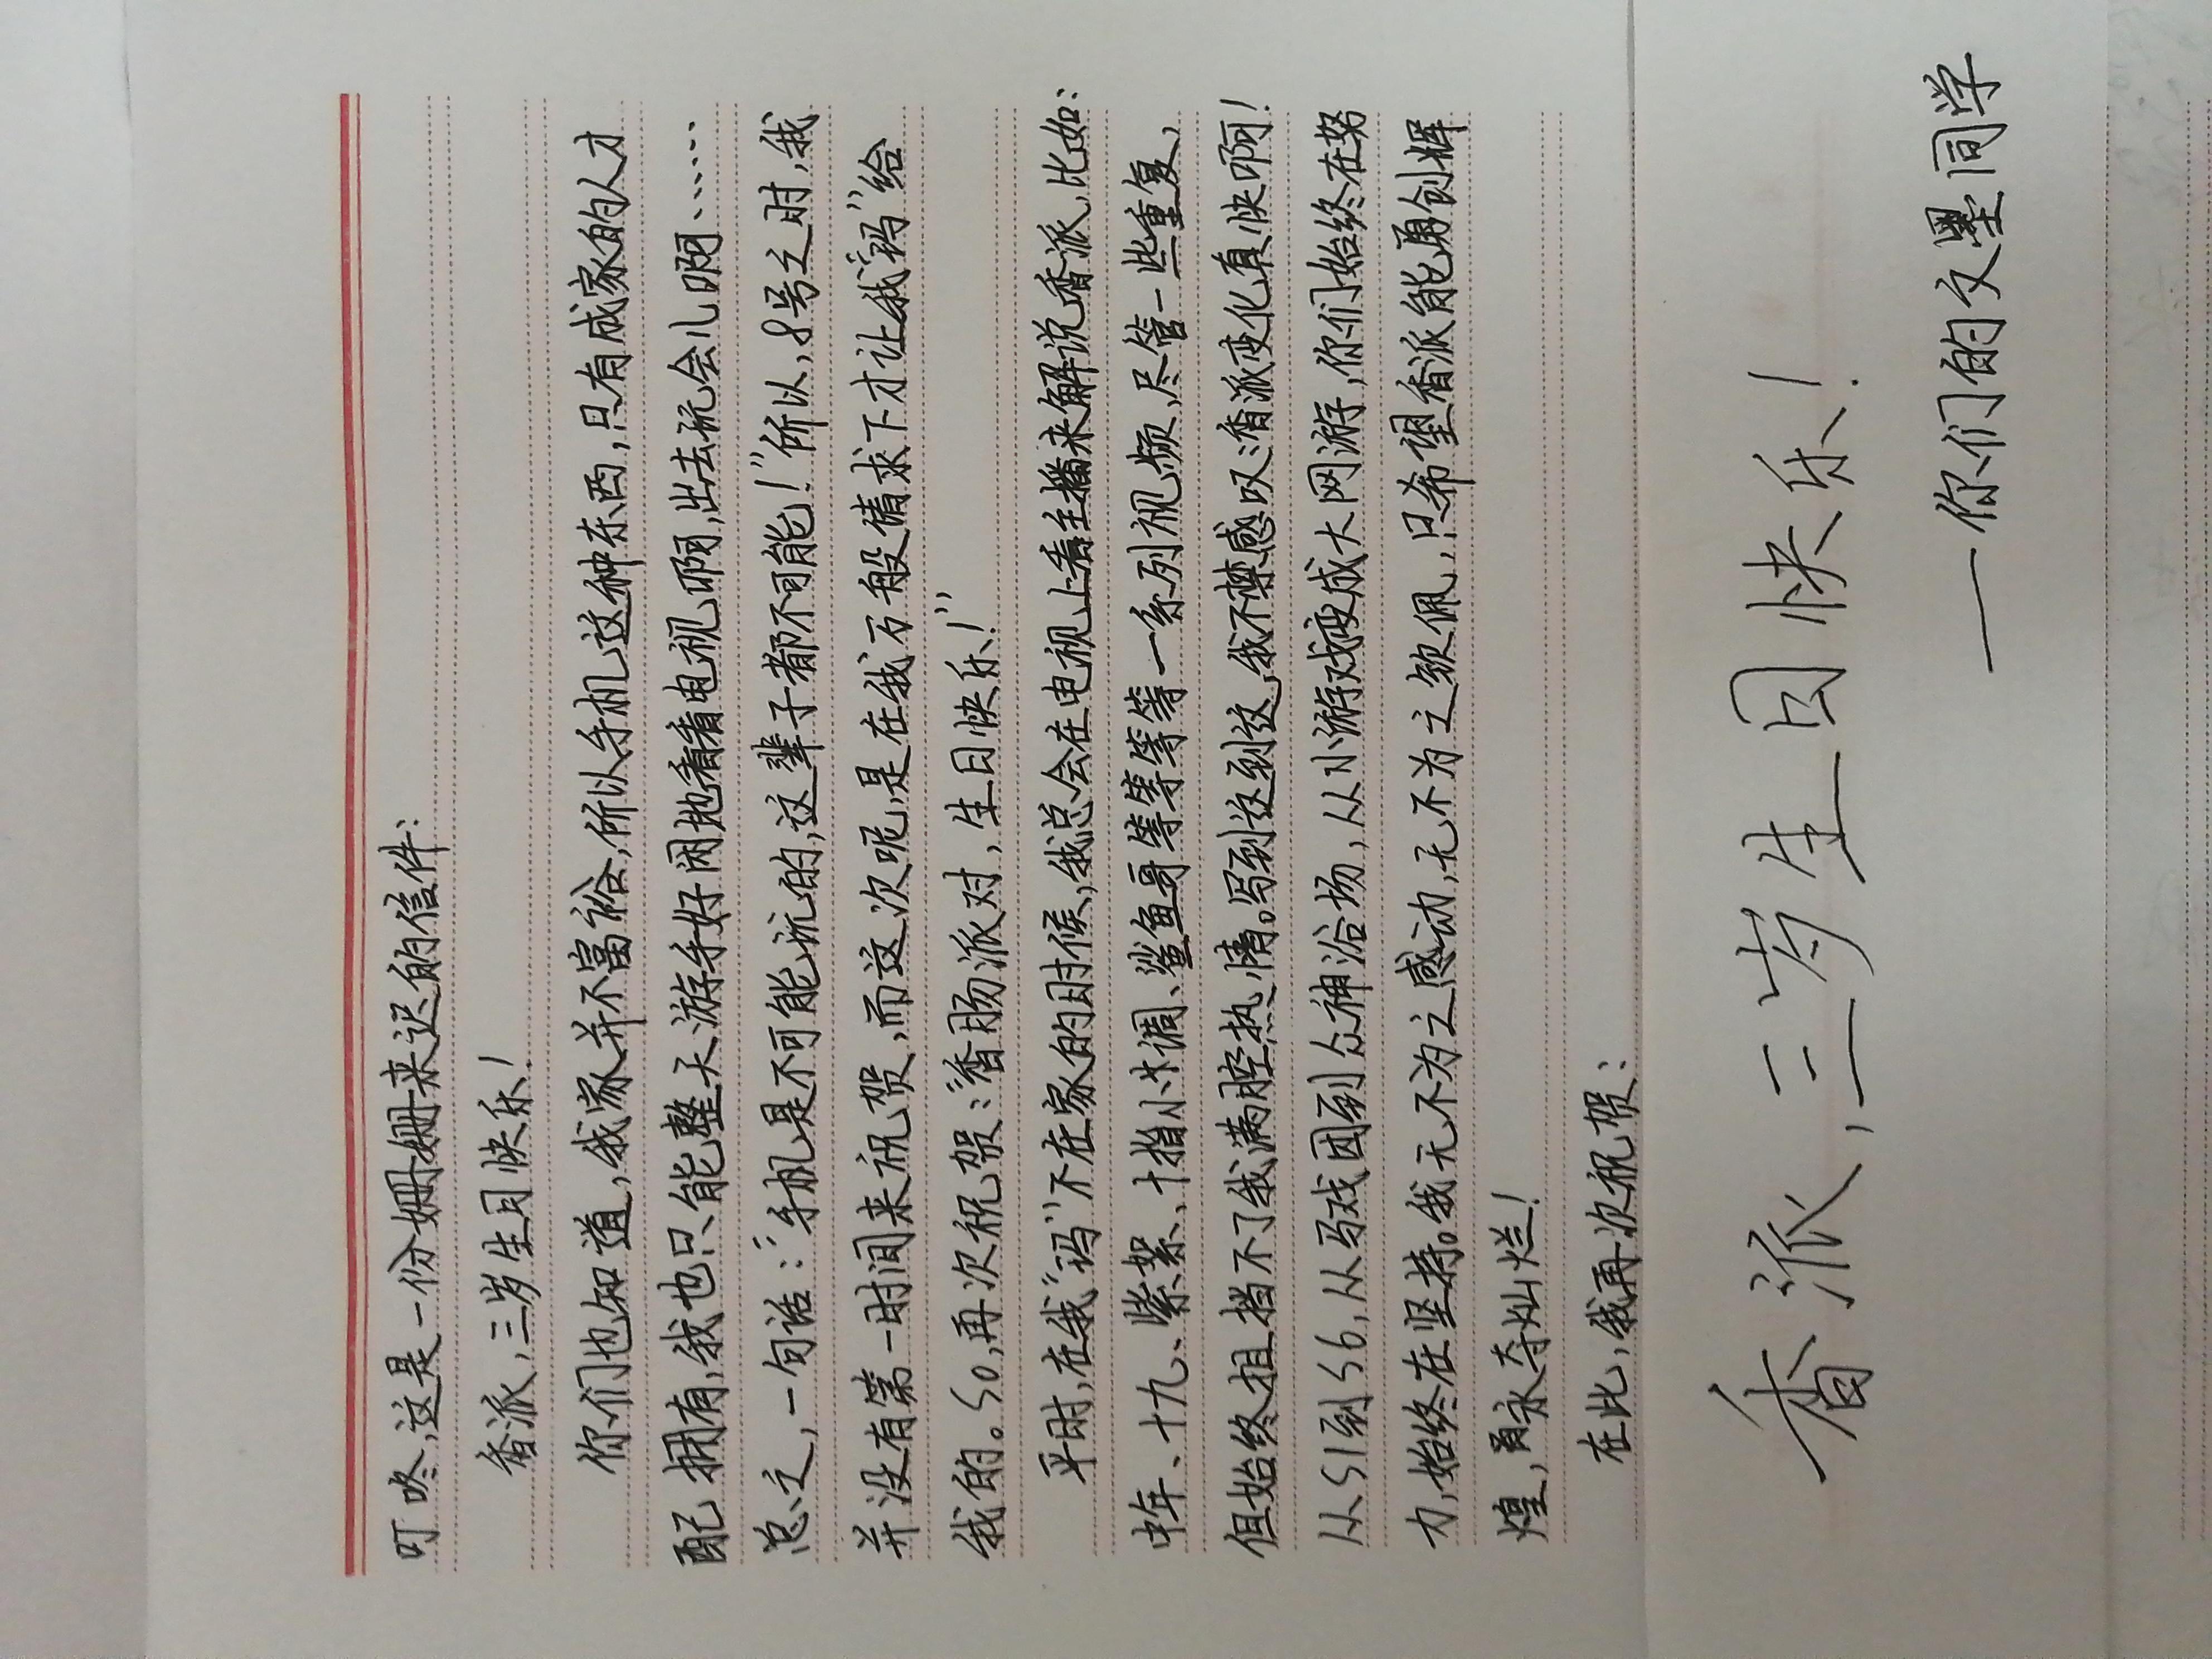 叮咚,这是一份姗姗来迟的信件:
香派,三岁生日快乐!
你们也知道,我家并不富裕,所以手机这种东西,只有成家的人才
配拥有,我也只能整天游手好闲地看看电视啊,出去玩会儿啊……
总之,一句话:“手机是不可能玩的,这辈子都不可能!”所以,8号之时,我
并没有第一时间来祝贺,而这次呢,是在我百般请求下才让我“妈”给
我的。So,再次祝贺:“香肠派对,生日快乐!”
平时,在我“妈”不在家的时候,我总会在电视上看主播来解说香派,比如:
中年、十九、紫絮、十指小术调、鲨鱼哥等等等等一系列视频,尽管一些重复,
但始终阻挡不了我满腔热情。写到这到这,我不禁感叹:香派变化真快啊!
从S1到S6,从马戏团到众神浴场,从小游戏变成大网游,你们始终在努
力,始终在坚持。我无不为之感动,无不为之钦佩,只希望香派能勇创辉
煌,勇永夺灿烂!
在此,我再次祝贺:
香派,三岁生日快乐!
——你们的文墨同学